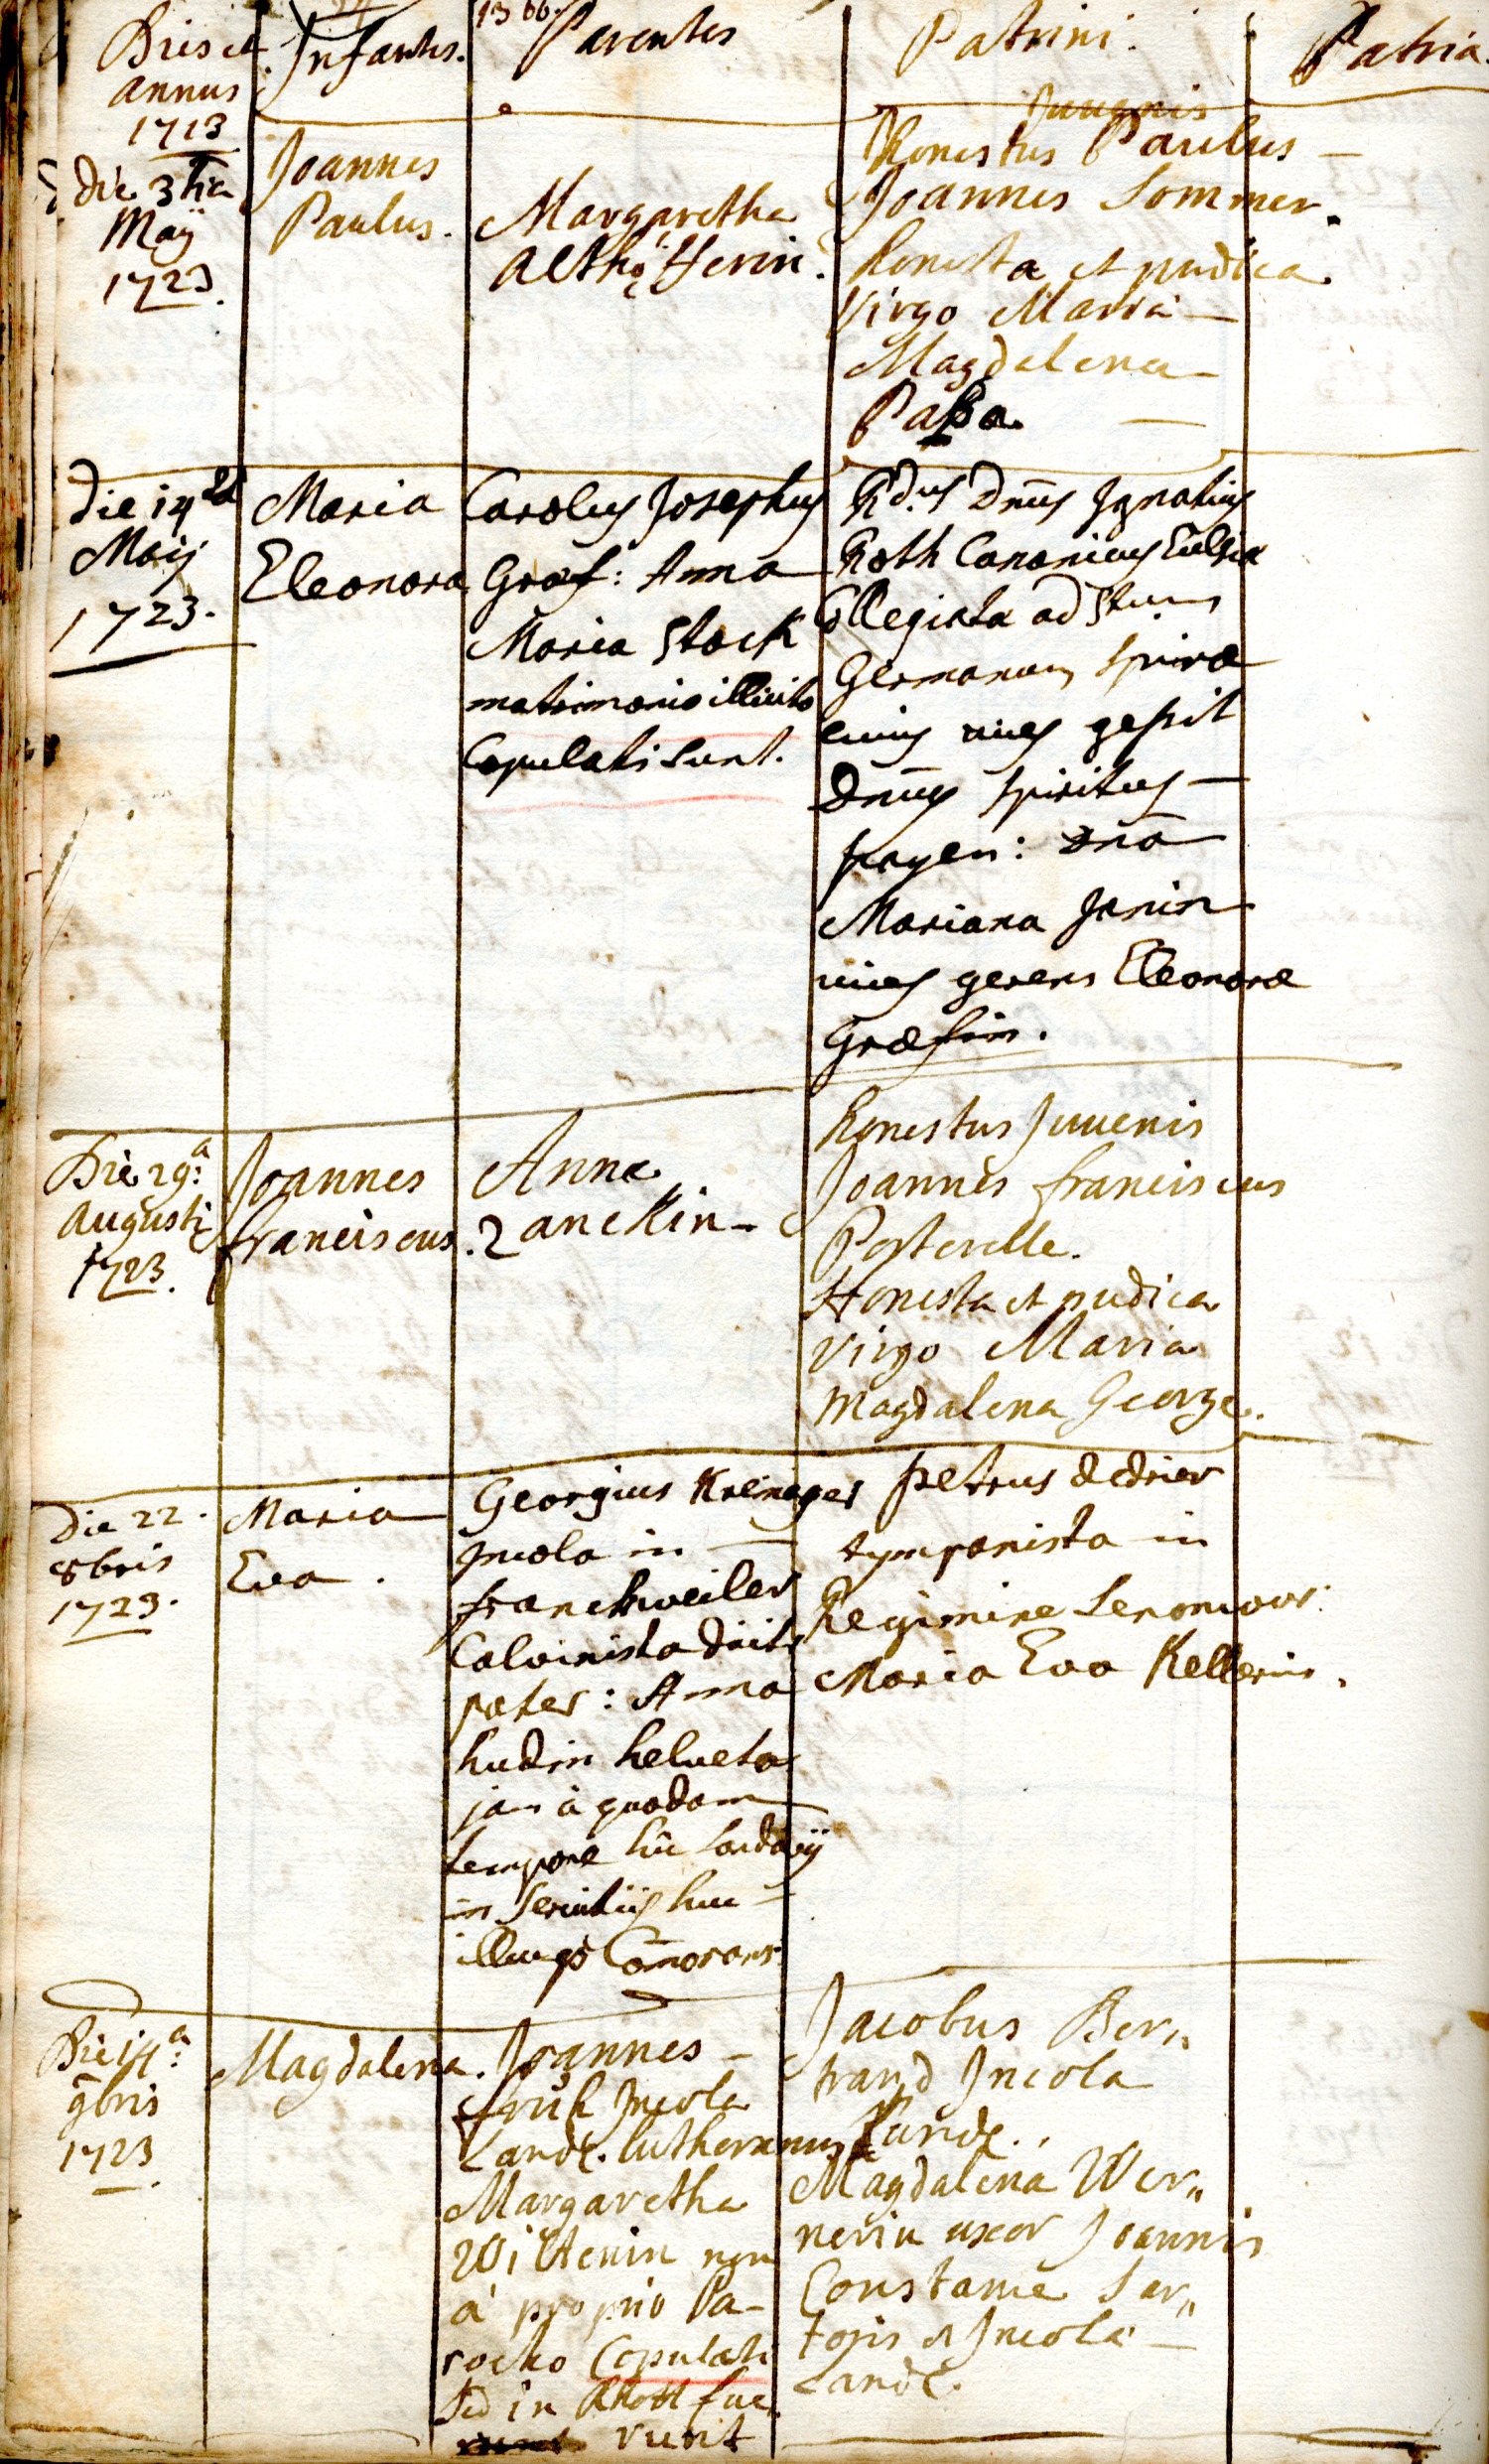 1366.
Dies et annus
Infantes.
Parentes
Patrini.
Patria.
1713
die 3tia
Maÿ
1723.
Joannes
Paulus.
Margaretha
Honestus Paulus
Joannes Sommer.
honesta et pudica
Virgo Maria
Magdalena
die 14ta
Maij
1723.
Maria
Eleonora
Carolus Josephus
Graf: Anna
Maria Stock
matrimonio illicito
Copulati sunt.
Rdus Dnus Ignatius
Roth Canonicus
Collegiata ad Stum
Germanum Spirae
cuius vices gessit
Dnus Spiritus
Mariana Janin
vices gerens Eleonorae
Graefin.
Die 29:a
Augusti
1723.
Joannes
franciscus.
Anna
Zanckin
honestus Juvenis
Joannes franciscus
Posterelle.
Honesta et pudica
Virgo Maria
Magdalena George.
die 22.
8bris
1723.
Maria
Eva.
Georgius
Incola in
franckweiler
Calvinista
pater: Anna
hudin helveta
jam à quodam
tempore hic
in servitiis huc
Comorans.
petrus
tympanista in
Regimine
Maria Eva Kellerin.
Die 14:a
9bris
1723.
Magdalena.
Joannes
früh Incola
Land. lutheranus
Margaretha
Wittenin non
à proprio Pa-
rocho Copulati
sed in fue
runt
Jacobus Ber„
trand Incola
Land.
Magdalena Wer„
nerin uxor Joannis
Constance Sar„
toris et Incola
Land.